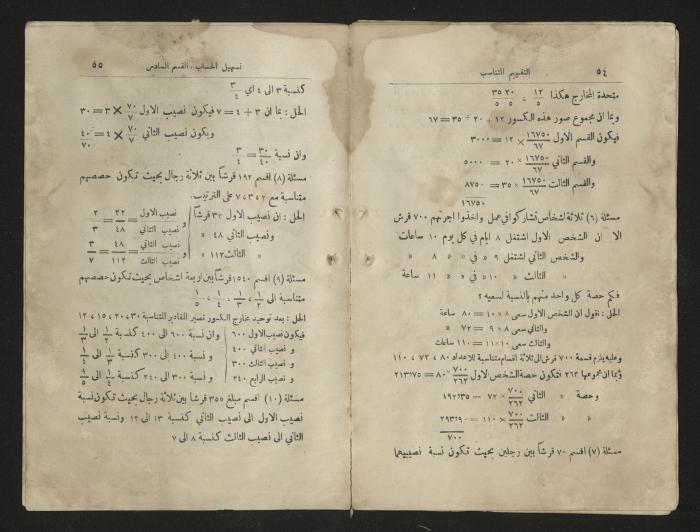 ٥٤ التقسيم التناسبي
متحدة المخارج هكذا ١٢/٥ ٢٠/٥ ٣٥/٥
وبما ان مجموع صور هذه الكسور ١٢ + ٢٠ + ٣٥ = ٦٧
فيكون القسم الاول ١٦٧٥٠/٦٧ × ١٢ = ٣٠٠٠
والقسم الثاني ١٦٧٥٠/٦٧ × ٢٠ = ٥٠٠٠
والقسم الثالث ١٦٧٥٠/٦٧ × ٣٥ = ٨٧٥٠
١٦٧٥٠
مسئلة (٦) ثلاثة اشخاص تشاركوا في عمل واخذوا اجرتهم ٧٠٠ قرش
الا ان الشخص الاول اشتغل ٨ ايام في كل يوم ١٠ ساعات
والشخص الثاني اشتغل ٩ » في » » ٨ »
» الثالث » ١٠ » في » » ١١ ساعة
فكم حصة كل واحد منهم بالنسبة لسعيه ؟
الحل : نقول ان الشخص الاول سعى ٨ × ١٠ = ٨٠ ساعة
والثاني سعى ٨ × ٩ = ٧٢ »
والثالث سعى ١٠ × ١١ = ١١٠ ساعات
وعليه يلزم قسمة ٧٠٠ قرش الى ثلاثة اقسام متناسبة للاعداد ٨٠ ، ٧٢ ، ١١٠
وبما ان مجموعها ٢٦٢ فتكون حصة الشخص الاول ٧٠٠/٢٦٢ × ٨٠ = ٢١٣٬٧٥
وحصة » الثاني ٧٠٠/٢٦٢ × ٧٢ = ١٩٢٬٣٥
» » الثالث ٧٠٠/٢٦٢ × ١١٠ = ٢٩٣٬٩٠
٧٠٠
مسئلة (٧) اقسم ٧٠ قرشاً بين رجلين بحيث تكون نسبة نصيبيهما
تسهيل الحساب ، القسم السادس ٥٥
كنسبة ٣ الى ٤ اي ٣/٤
الحل : بما ان ٣ + ٤ = ٧ فيكون نصيب الاول ٧٠/٧ × ٣ = ٣٠
ويكون نصيب الثاني ٧٠/٧ × ٤ = ٤٠
٧٠
وان نسبة ٣٠/٤٠ = ٣/٤
مسئلة (٨) اقسم ١٩٢ قرشاً بين ثلاثة رجال بحيث تكون حصصهم
متناسبة مع ٢ ، ٣ ، ٧ على الترتيب .
الحل : ان نصيب الاول ٣٢ قرشاً و نصيب الاول/نصيب الثاني = ٣٢/٤٨ = ٢/٣
ونصيب الثاني ٤٨ »
» الثالث ١١٢ » و نصيب الثاني/نصيب الثالث = ٤٨/١١٢ = ٣/٧
مسئلة (٩) اقسم ١٥٤٠ قرشاً بين اربعة اشخاص بحيث تكون حصصهم
متناسبة الى ١/٢ ، ١/٣ ، ١/٤ ، ١/٥
الحل : بعد توحيد مخارج الكسور تصير المقادير المتناسبة ٣٠ ، ٢٠ ، ١٥ ، ١٢
فيكون نصيب الاول ٦٠٠ وان نسبة ٦٠٠ الى ٤٠٠ كنسبة ١/٢ الى ١/٣
و نصيب الثاني ٤٠٠ و نسبة ٤٠٠ الى ٣٠٠ كنسبة ١/٣ الى ١/٤
و نصيب الثالث ٣٠٠
و نصيب الرابع ٢٤٠ و نسبة ٣٠٠ الى ٢٤٠ كنسبة ١/٤ الى ١/٥
مسئلة (١٠) اقسم مبلغ ٣٥٥ قرشاً بين ثلاثة رجال بحيث تكون نسبة
نصيب الاول الى نصيب الثاني كنسبة ١٣ الى ١٢ ونسبة نصيب
الثاني الى نصيب الثالث كنسبة ٨ الى ٧